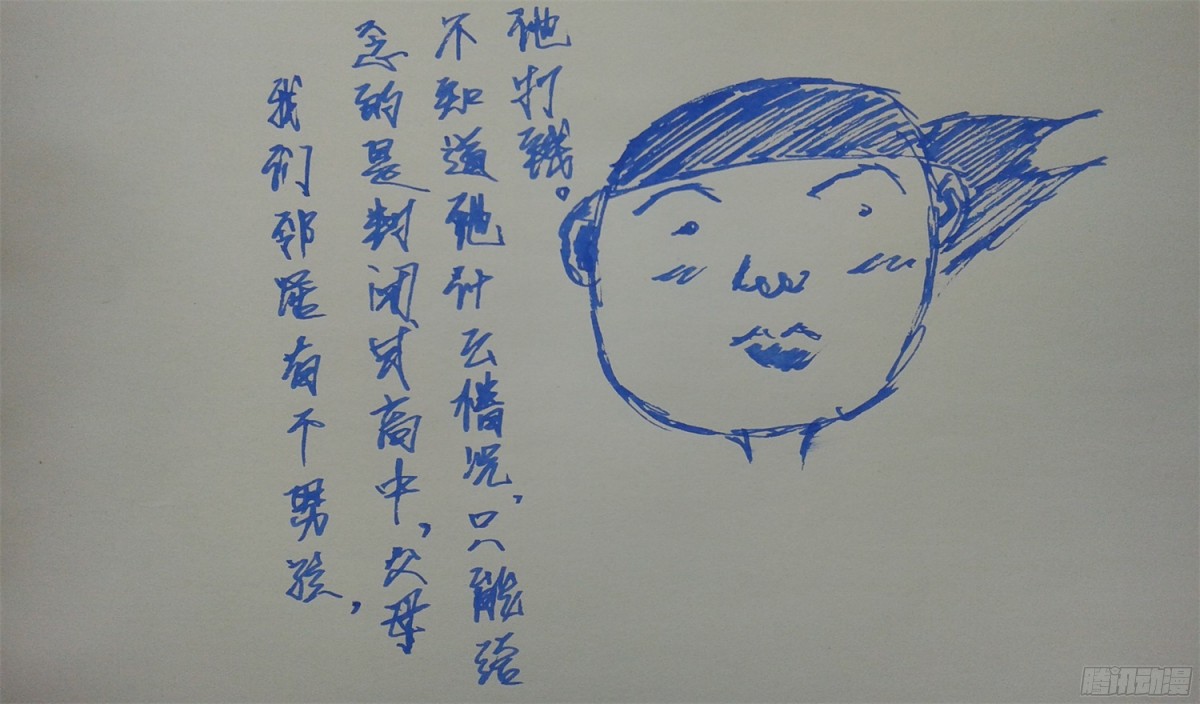 我们邻居有个男孩，
念的是封闭式高中，父母
不知道他什么情况，只能给
他打钱。
腾讯动漫